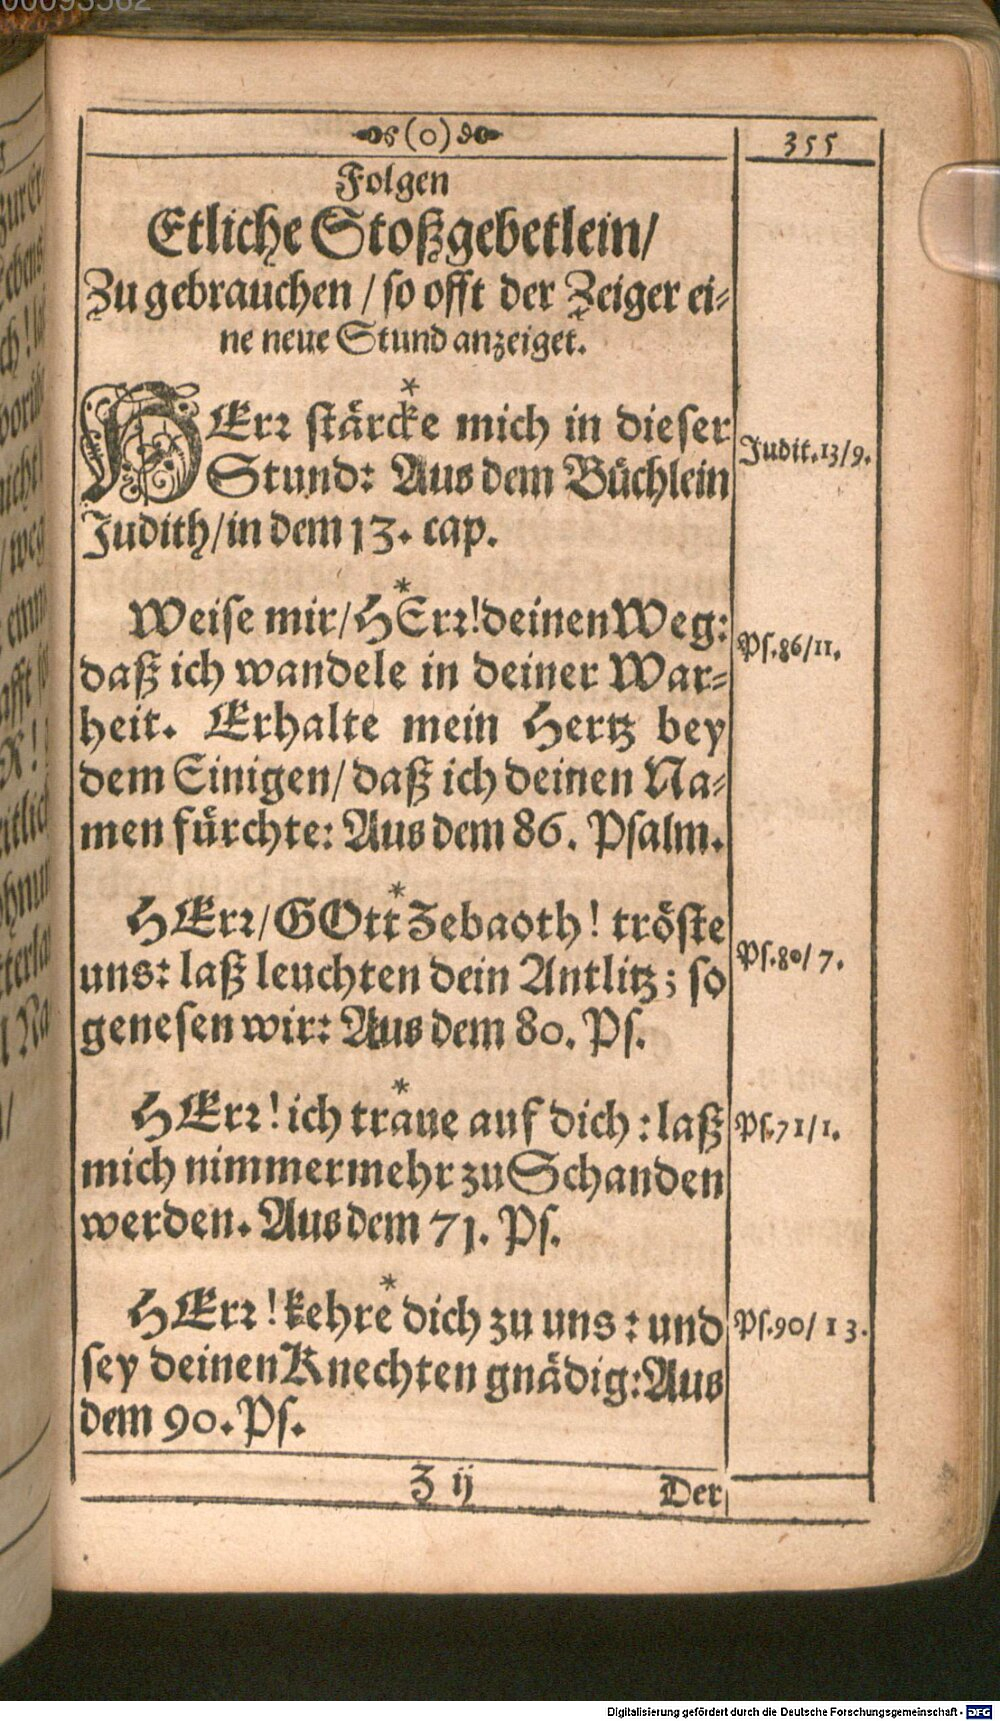 (o)
355
Folgen
Etliche Stoßgebetlein/
Zu gebrauchen / so offt der Zeiger ei-
ne neue Stund anzeiget.
*
HErr stärcke mich in dieser
Stund: Aus dem Büchlein
Judith/in dem 13. cap.
Judit.13/9.
*
Weise mir/HErr!deinen Weg:
daß ich wandele in deiner War-
heit. Erhalte mein Hertz bey
dem Einigen/ daß ich deinen Na-
men fürchte: Aus dem 86. Psalm.
Ps.86/11.
*
HErr/GOtt Zebaoth! tröste
uns: laß leuchten dein Antlitz; so
genesen wir: Aus dem 80. Ps.
Ps.80/7.
*
HErr! ich traue auf dich: laß
mich nimmermehr zu Schanden
werden. Aus dem 71. Ps.
Ps.71/1.
*
HErr! kehre dich zu uns: und
sey deinen Knechten gnädig: Aus
dem 90. Ps.
Ps.90/13.
Z ij
Der
Digitalisierung gefördert durch die Deutsche Forschungsgemeinschaft - DFG